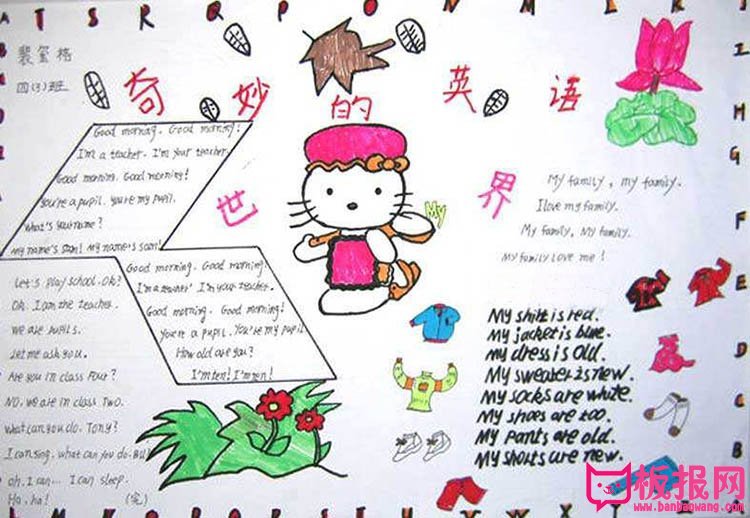 T S R Q P O N M L K
裴玺格
四(3)班
奇妙的英语
世界
My
Good morning. Good morning!
I'm a teacher. I'm your teacher.
Good morning. Good morning!
You're a pupil. you're my pupil.
What's your name?
My name's Sam! My name's Sam!
My family, my family.
I love my family.
My family, My family.
My family love me!
Let's play school. Ok?
Ok. I am the teacher.
We are pupils.
Let me ask you.
Are you in class Four?
NO, we are in class Two.
What can you do, Tony?
I can sing. what can you do. Bill
oh. I can... I can sleep.
Ha, ha!
(完)
Good morning. Good morning.
I'm a teacher. I'm your teacher.
Good morning. Good morning!
You're a pupil. You're my pupil
How old are you?
I'm ten! I'm ten!
My shirt is red.
My jacket is blue.
my dress is old.
My sweater is new.
My socks are white.
My shoes are too.
My pants are old.
My shorts are new.
J
I
H
G
F
E
D
C
B
板报网
www.banbaowang.com